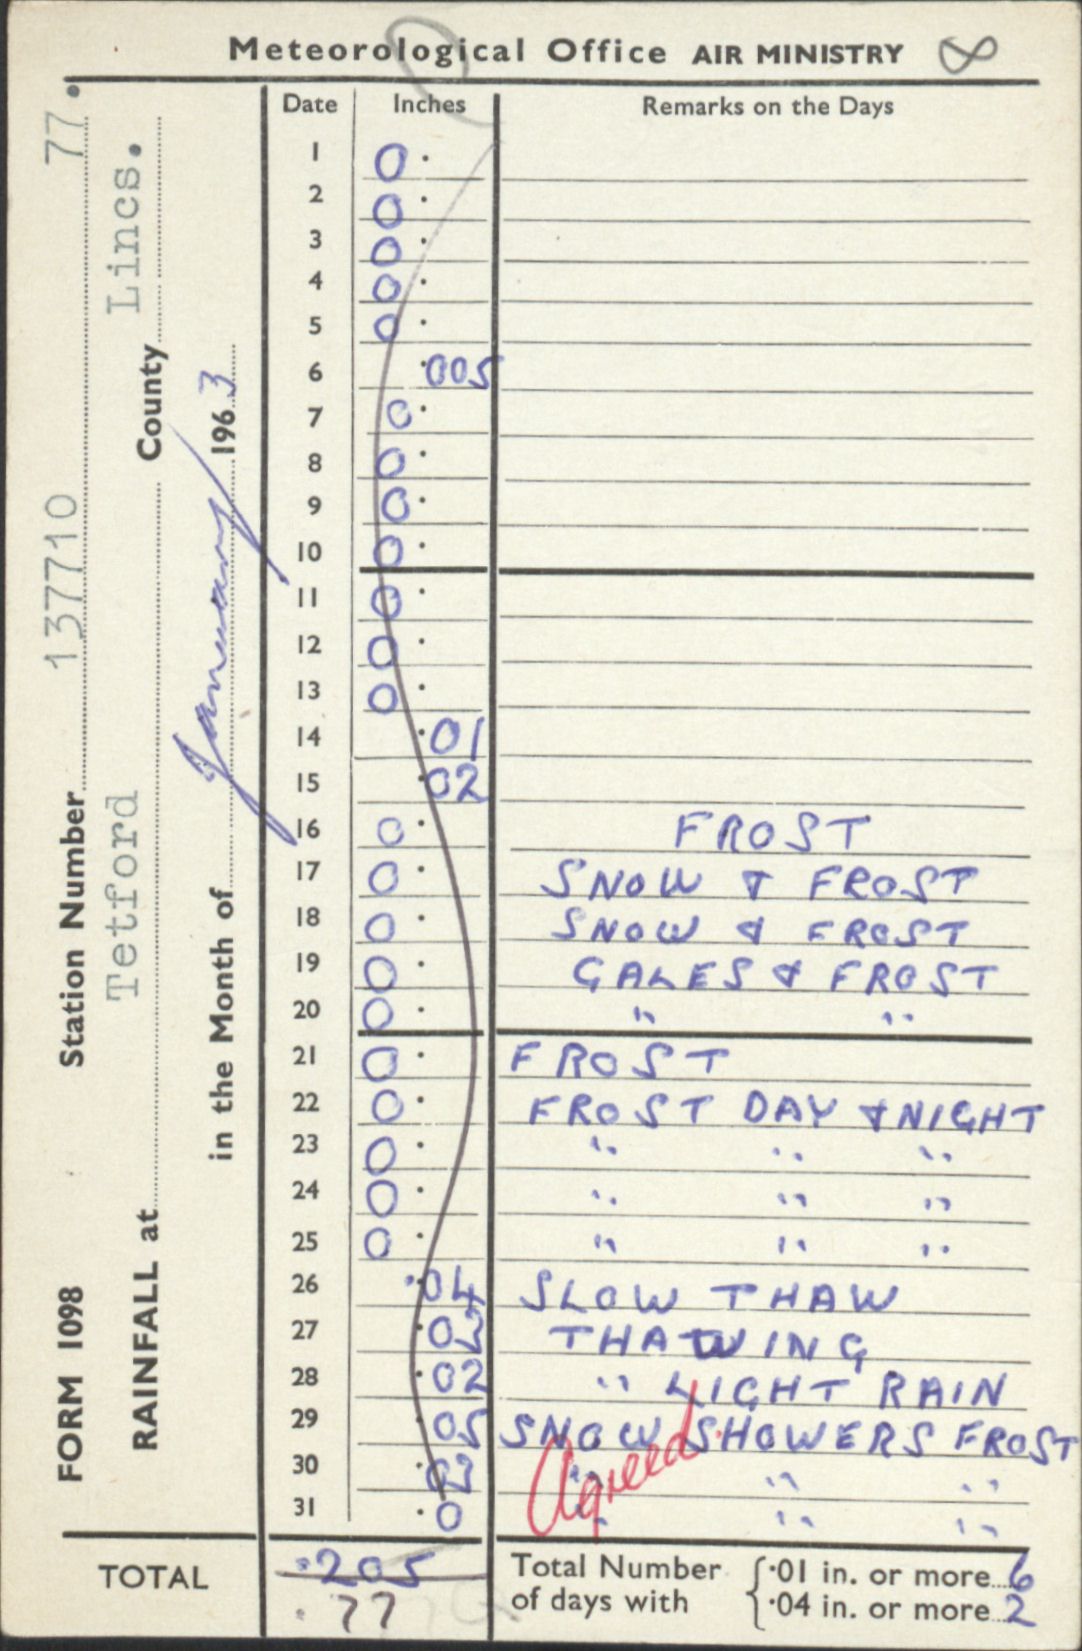 Meteorological Office AIR MINISTRY 8
FORM 1098 Station Number 137710 77.
RAINFALL at Tetford County Lincs.
in the Month of January 1963
Date Inches Remarks on the Days
1 0 .
2 0 .
3 0 .
4 0 .
5 0 .
6 .005
7 0 .
8 0 .
9 0 .
10 0 .
11 0 .
12 0 .
13 0 .
14 .01
15 .02
16 0 . FROST
17 0 . SNOW & FROST
18 0 . SNOW & FROST
19 0 . GALES & FROST
20 0 . " "
21 0 . FROST
22 0 . FROST DAY & NIGHT
23 0 . " " "
24 0 . " " "
25 0 . " " "
26 .04 SLOW THAW
27 .02 THAWING
28 .02 " LIGHT RAIN
29 .05 SNOW SHOWERS FROST
30 " " "
31 .0 " " "
Agreed
TOTAL .205
.77
Total Number of days with { .01 in. or more 6
.04 in. or more 2